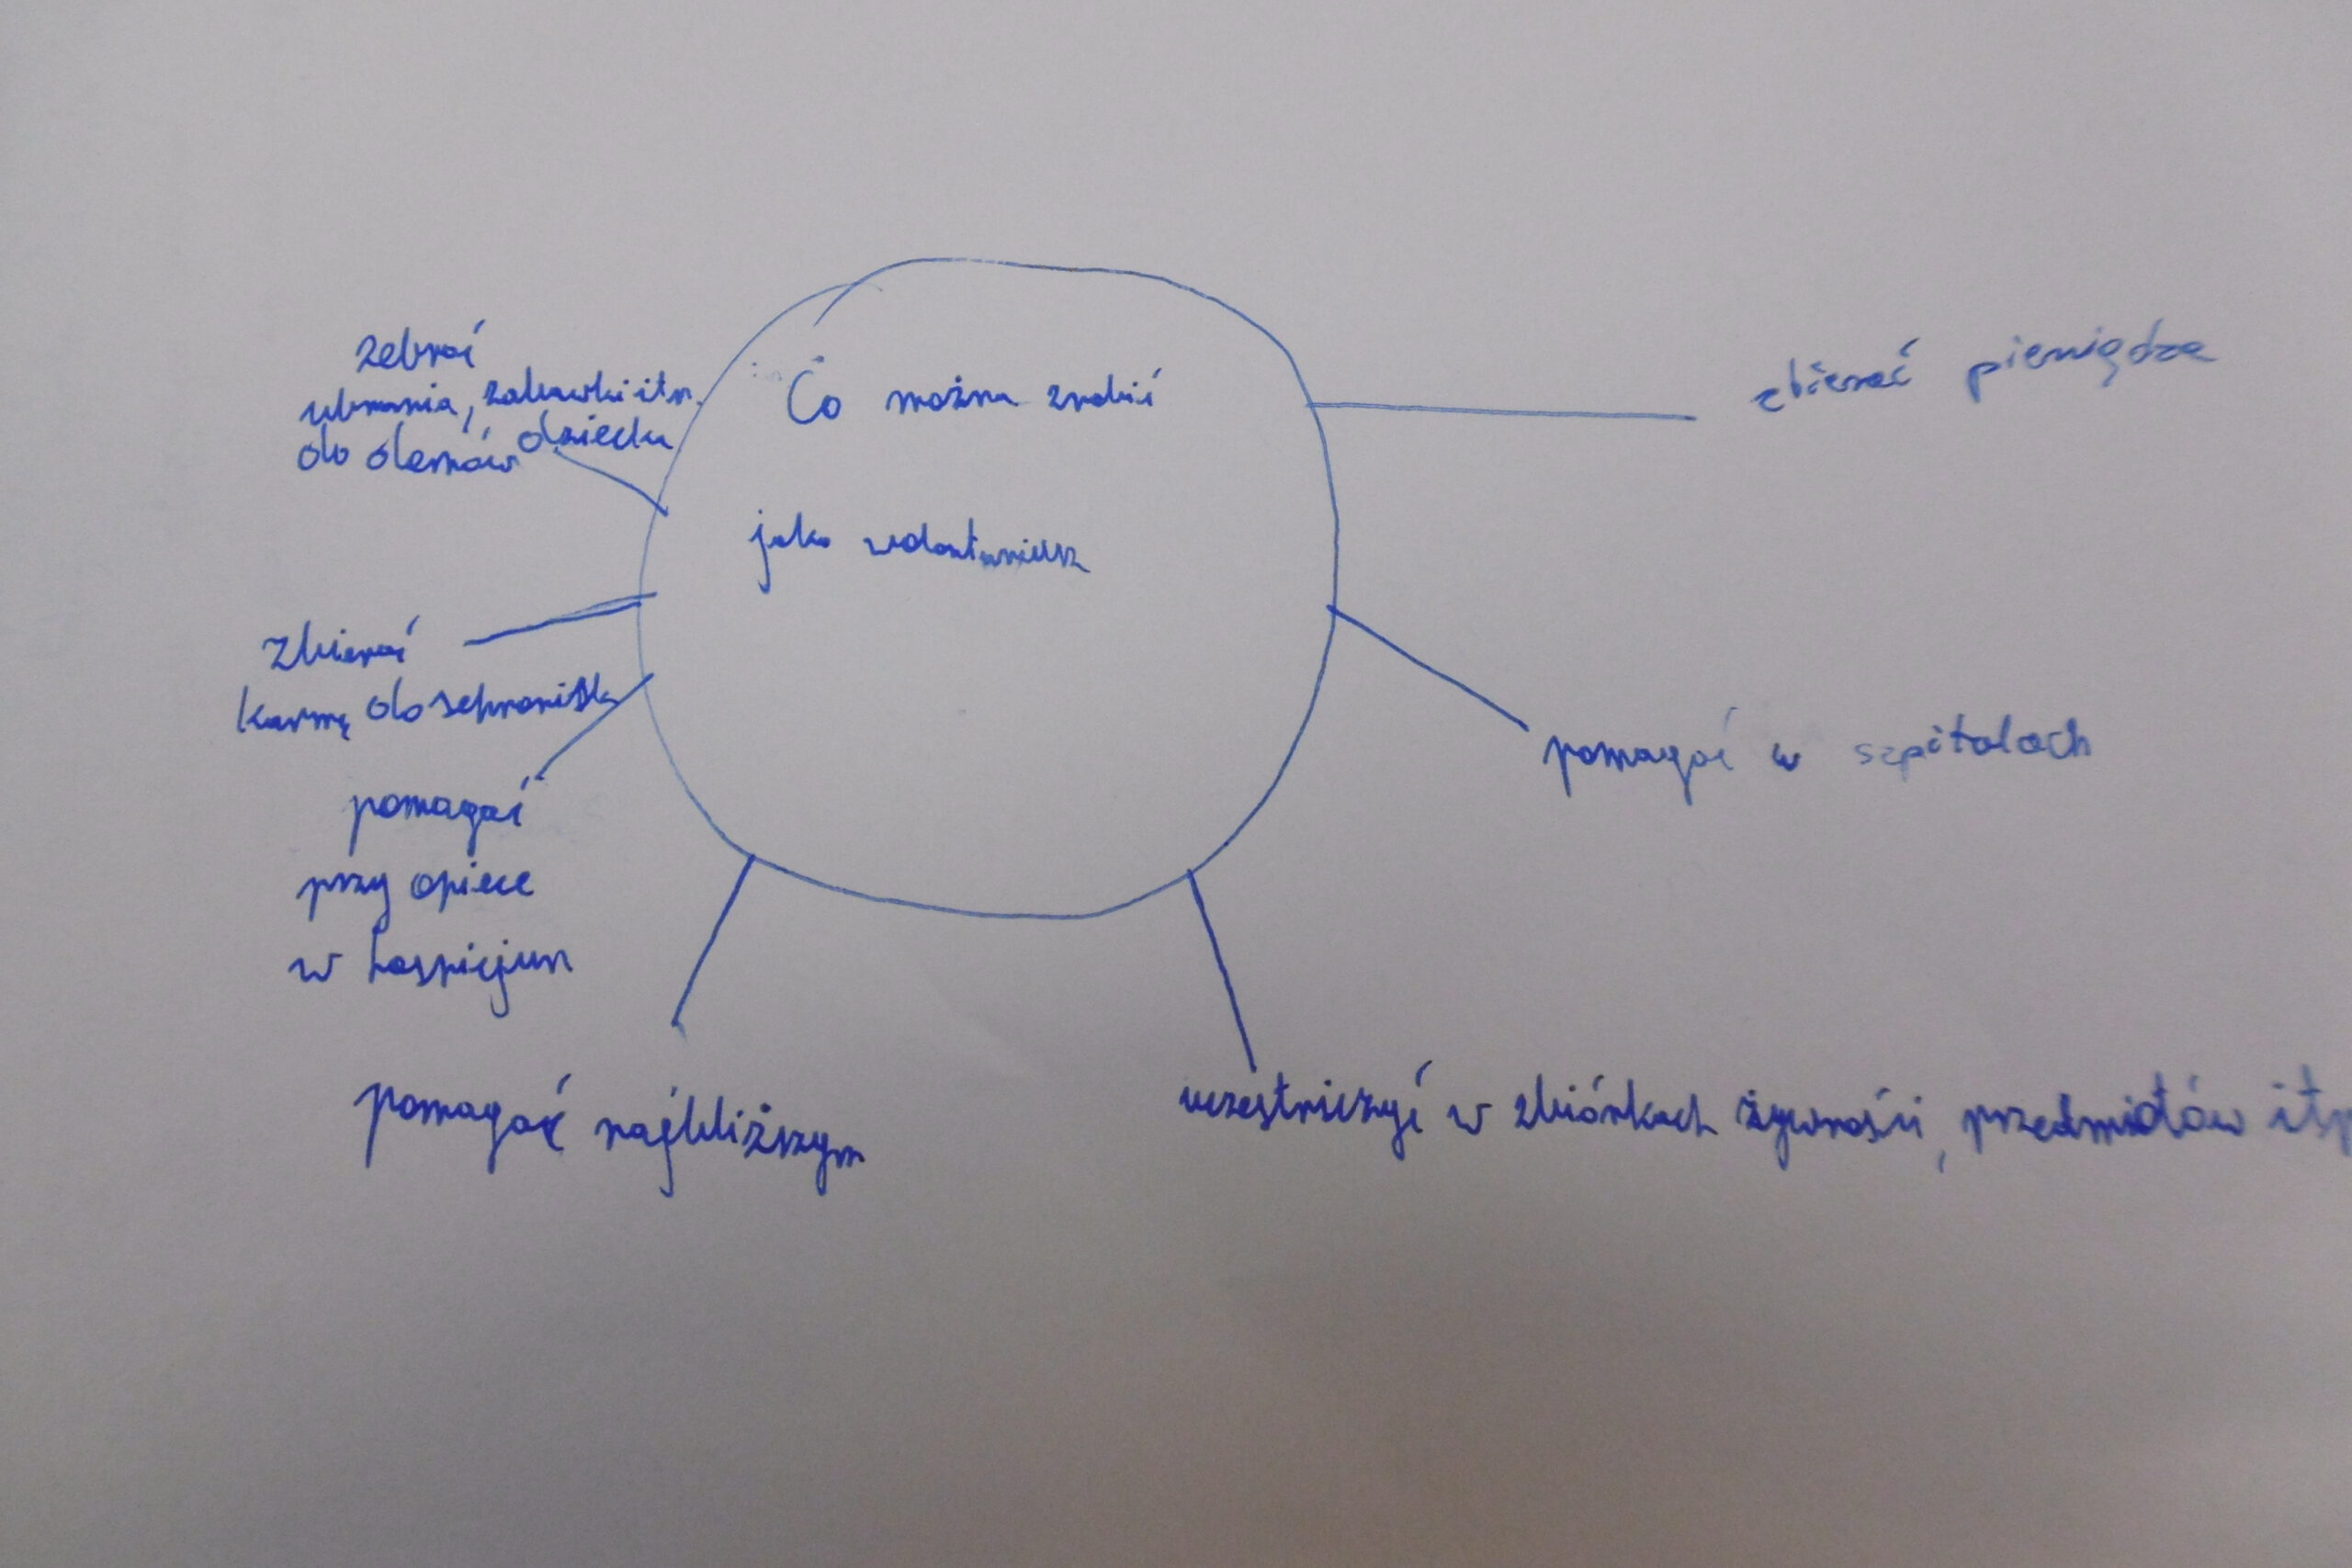 Co można zrobić
jako wolontariusz
zbierać pieniądze
pomagać w szpitalach
uczestniczyć w zbiórkach żywności, przedmiotów itp
pomagać najbliższym
pomagać
przy opiece
w hospicjum
Zbierać
karmę do schronisk
zebrać
ubrania, zabawki itp.
do domów dziecka